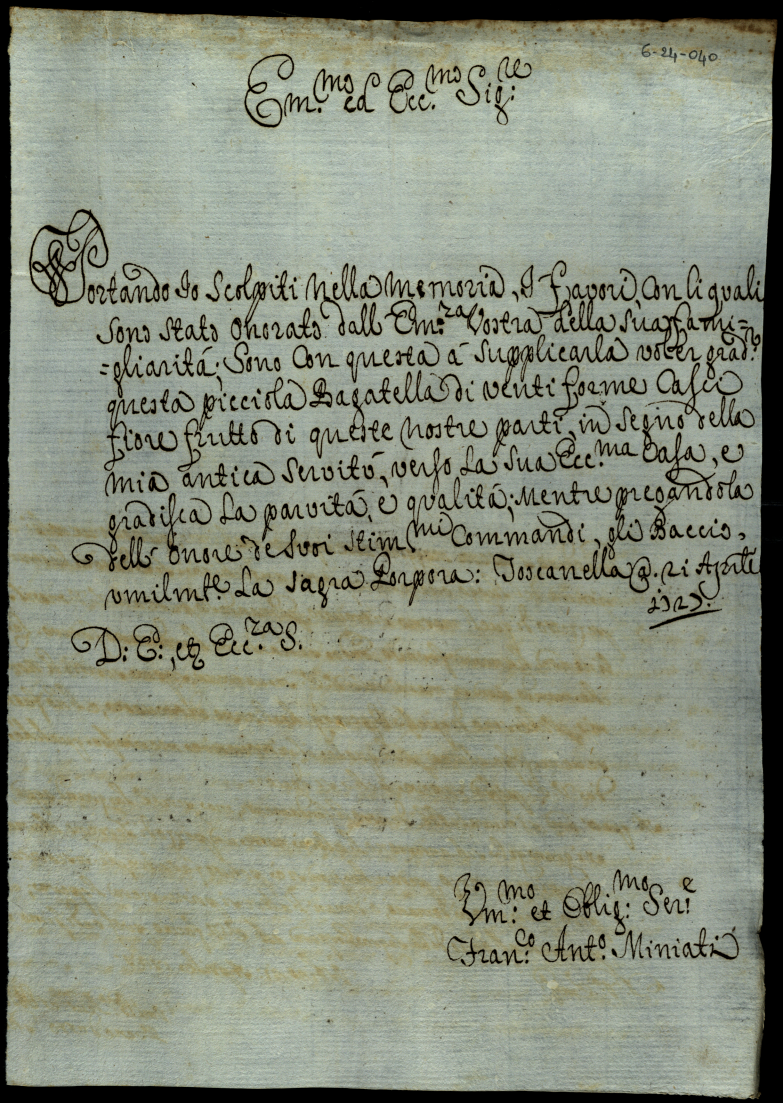 6-24-040
Em.mo ed Ecc.mo Sig:re
Portando Io Scolpiti Nella Memoria, I favori, Con li quali
Sono Stato Onorato dall Em:za Vostra della Sua fami=
=gliarità; Sono Con questa à Supplicarla voler grad:
questa picciola Bagatella di venti forme Casci
fiore frutto di queste Nostre parti, in Segno della
mia antica Servitù, verso La Sua Ecc.ma Casa, e
gradisca La parvità, e qualità; Mentre pregandola
dell' Onore de Suoi Stim.mi Commandi, gli Baccio
umilmte La Sagra Porpora: Toscanella @. 21 Aprile
D: E:, et Ecc.za S.
Um:mo et Oblig:mo Ser:e
Fran:co Ant:o Miniati